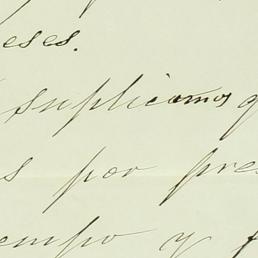 eses.
suplicamos q
s por pres
empo y